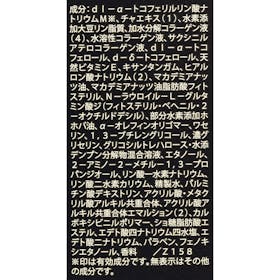 成分：dl－α－トコフェリルリン酸ナ
トリウムM※、チャエキス（1）、水素添
加大豆リン脂質、加水分解コラーゲン液
（4）、水溶性コラーゲン液、サクシニル
アテロコラーゲン液、dl－α－トコ
フェロール、d－δ－トコフェロール、天
然ビタミンE、キサンタンガム、ヒアル
ロン酸ナトリウム（2）、マカデミアナッ
ツ油、マカデミアナッツ油脂肪酸フィト
ステリル、N－ラウロイル－L－グルタ
ミン酸ジ（フィトステリル・ベヘニル・2
－オクチルドデシル）、部分水素添加ホ
ホバ油、α－オレフィンオリゴマー、ワセ
リン、1，3－ブチレングリコール、濃グ
リセリン、グリコシルトレハロース・水添
デンプン分解物混合溶液、エタノール、
2－アミノ－2－メチル－1，3－プロ
パンジオール、リン酸一水素ナトリウム、
リン酸二水素カリウム、精製水、パルミ
チン酸デキストリン、アクリル酸・メタク
リル酸アルキル共重合体、アクリル酸アル
キル共重合体エマルション（2）、カル
ボキシビニルポリマー、ショ糖脂肪酸エ
ステル、エデト酸四ナトリウム四水塩、エ
デト酸二ナトリウム、パラベン、フェノキ
シエタノール、香料　／Z158
※印は「有効成分」、無表示は「その他
の成分」です。